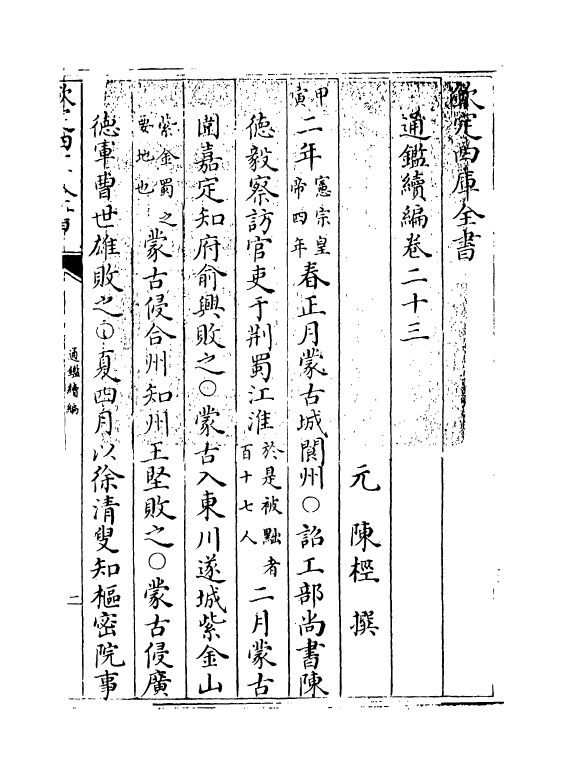 欽定四庫全書
通鑑續編卷二十三
元 陳桱 撰
甲寅二年憲宗皇帝四年春正月蒙古城閬州○詔工部尚書陳
德毅察訪官吏于荆蜀江淮於是被黜者百十七人二月蒙古
圍嘉定知府俞興敗之○蒙古入東川遂城紫金山
紫金蜀之要地也蒙古侵合州知州王堅敗之○蒙古侵廣
德軍曹世雄敗之○夏四月以徐清叟知樞密院事
通鑑續編